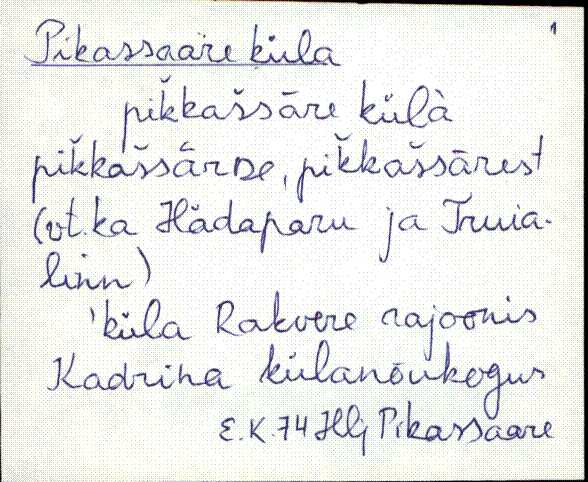 1
Pikassaare küla
pik̆kas̆sāre külà
pik̆kas̆sārDe, pik̆kas̆sārest
(vt. ka Hädaparu ja Truia-
linn)
'küla Rakvere rajoonis
Kadrina külanõukogus
E.K. 74 Hlj Pikassaare